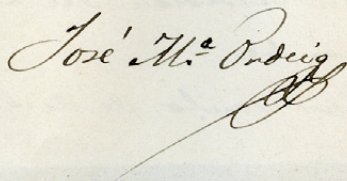 José Mª Ordeig